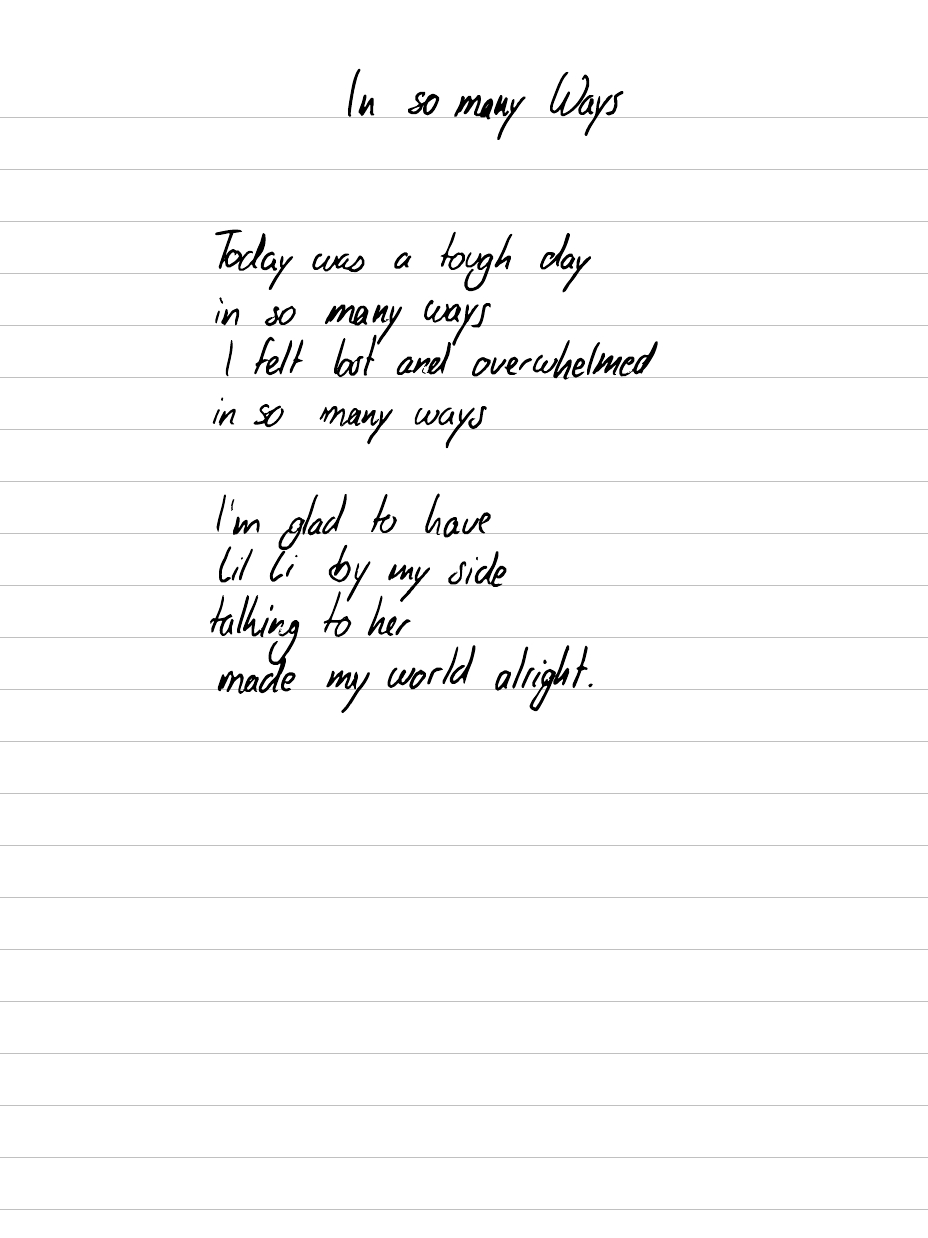 In so many Ways
Today was a tough day
in so many ways
I felt lost and overwhelmed
in so many ways
I'm glad to have
Lil Li by my side
talking to her
made my world alright.